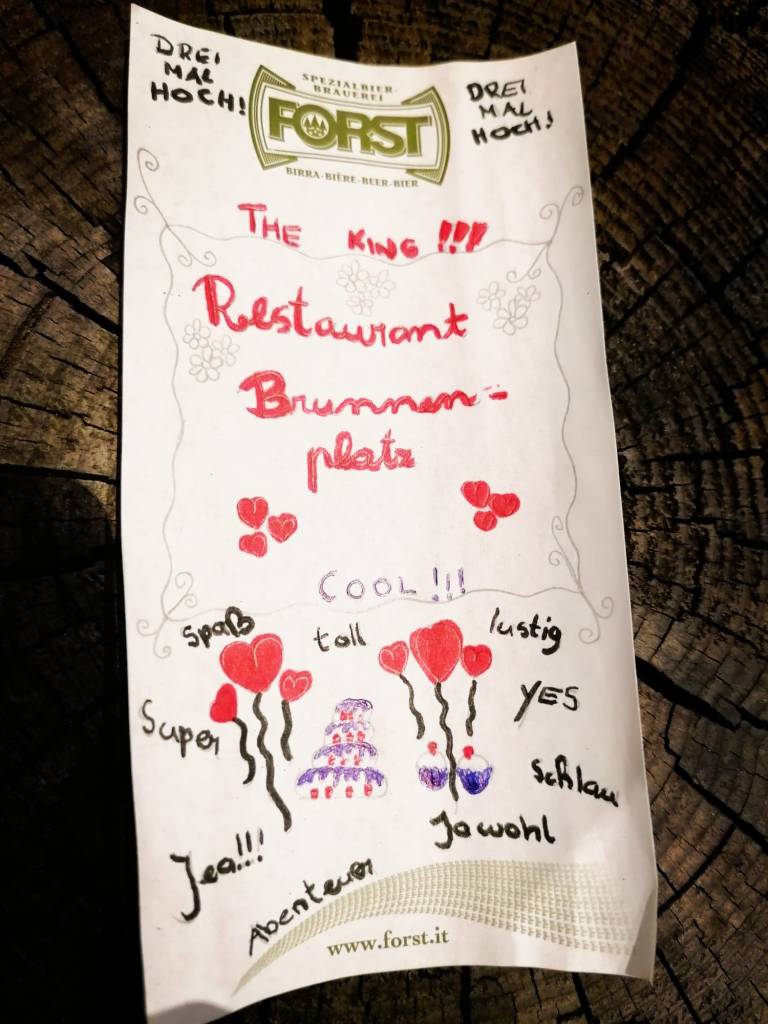 DREI
MAL
HOCH!
SPEZIALBIER-
BRAUEREI
FORST
BIRRA-BIÈRE-BEER-BIER
DREI
MAL
HOCH!
THE KING !!!
Restaurant
Brunnen-
platz
COOL!!!
Spaß
toll
lustig
Super
YES
Schlau
Jawohl
Jea!!!
Abenteuer
www.forst.it